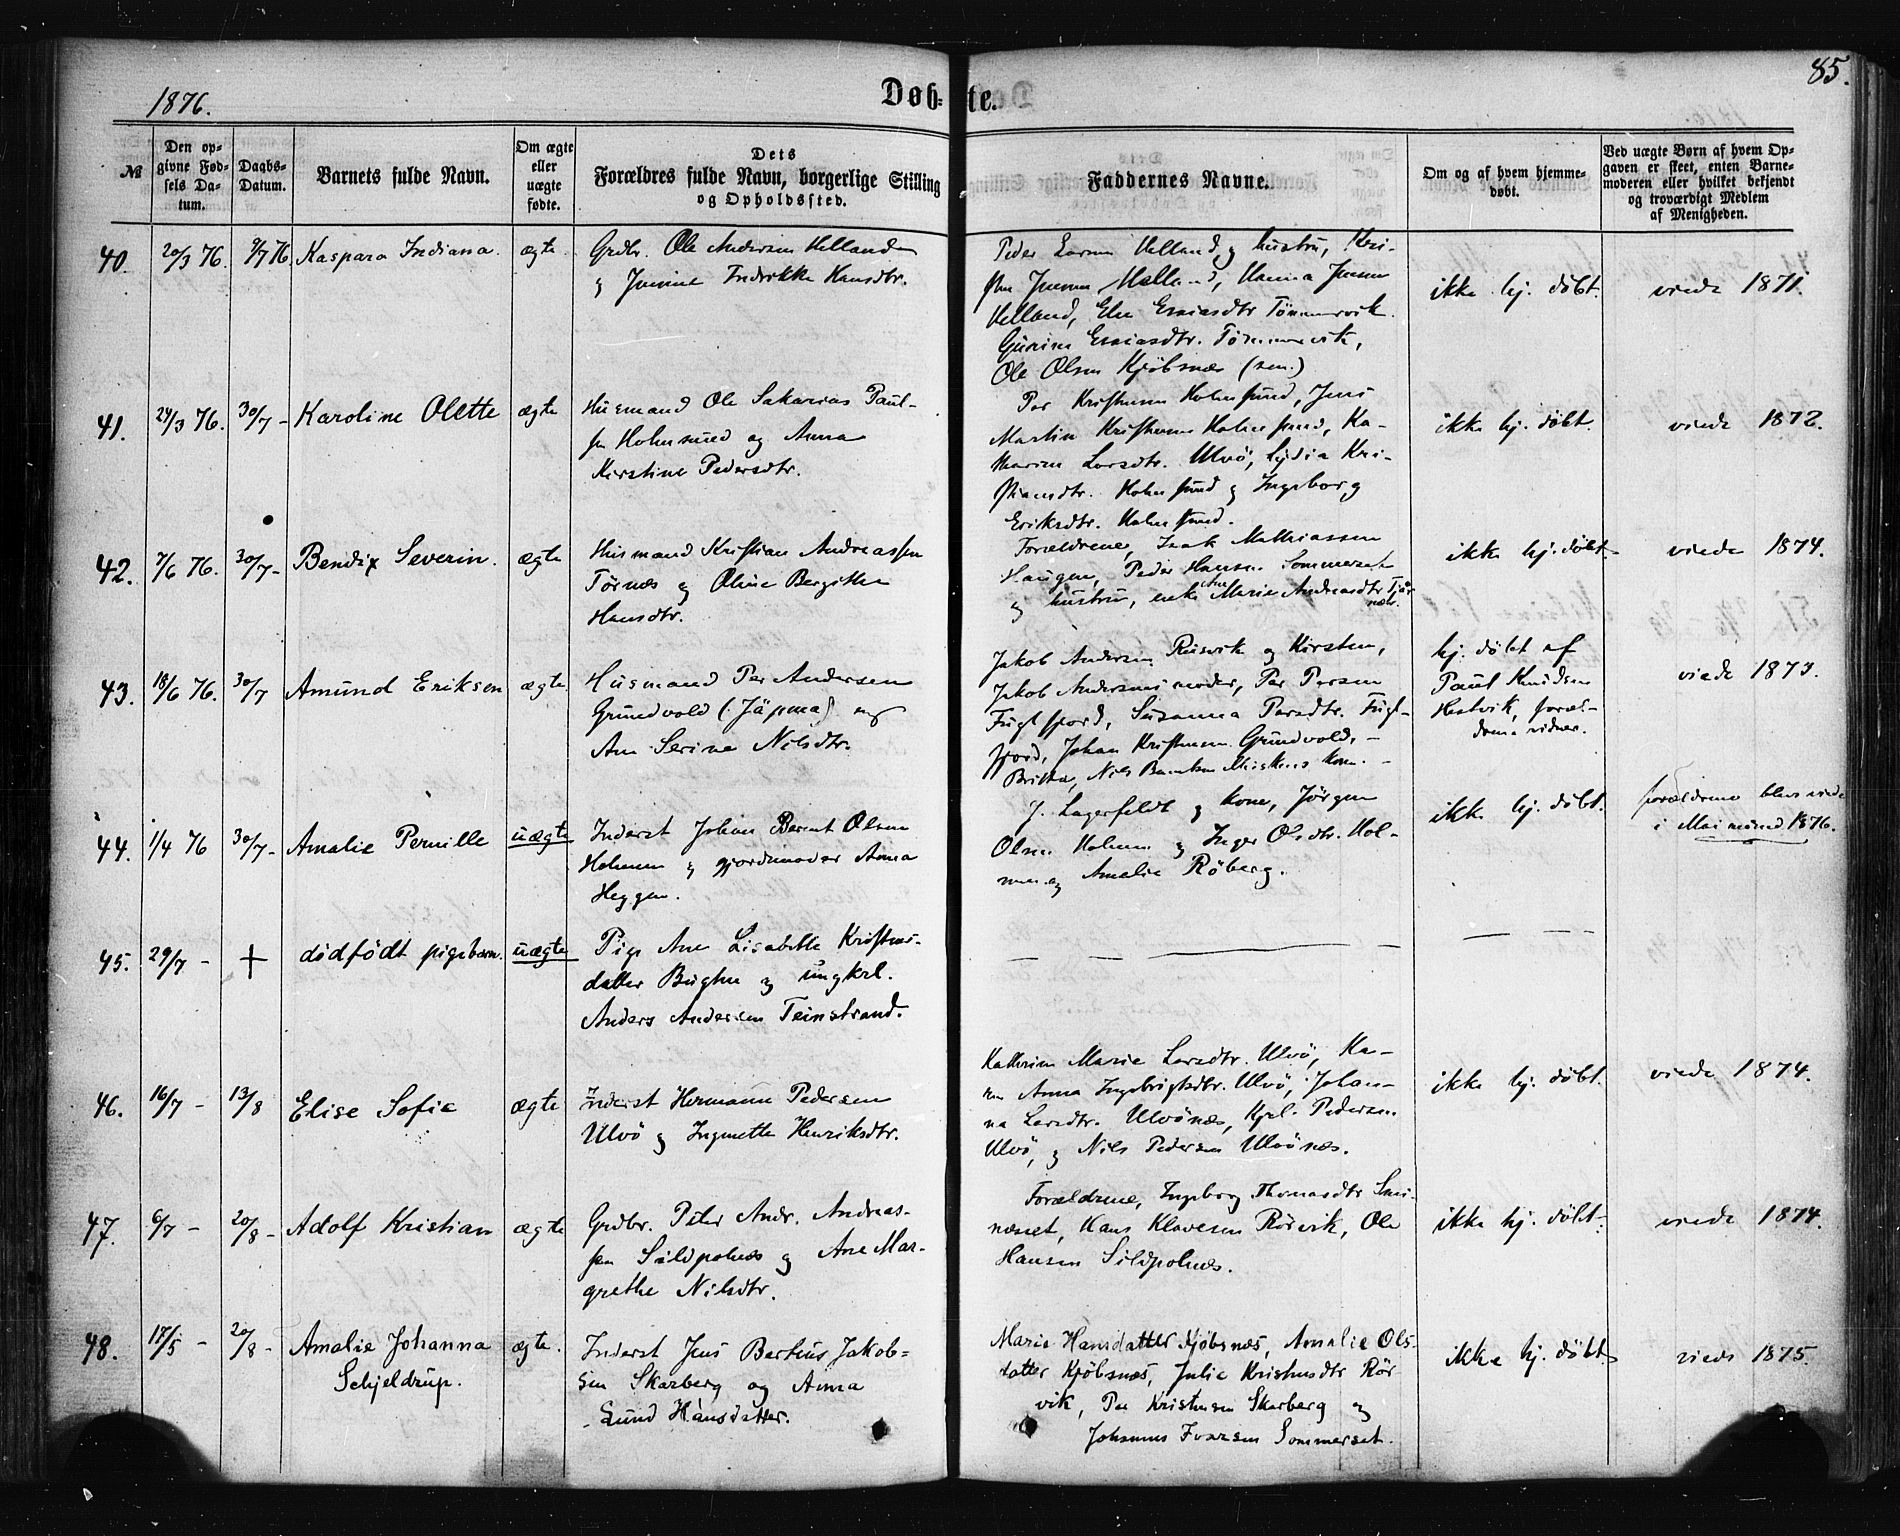 1876.
Døb-te.
85.
№
Den opgivne Fødsels Datum.
Daabs-Datum.
Barnets fulde Navn.
Om ægte eller uægte fødte.
Dets
Forældres fulde Navn, borgerlige Stilling
og Opholdssted.
Faddernes Navne.
Om og af hvem hjemmedøbt.
Ved uægte Børn af hvem Opgaven er skeet, enten Barnemoderen eller hvilket bekjendt og troværdigt Medlem af Menigheden.
40. 20/3 76. 9/7 76. Kaspara Indiana. ægte
Grdbr. Ole Andersen Helland
og Hansdtr.
Peder Larsen Helland og hustru, Kri-
Helland, Hanna Jensen
Helland, Else Esaiasdtr Tömmervik.
Esaiasdtr. Tömmervik,
Ole Olsen Kjöbsnæs (sen.)
ikke hj. döbt.
viede 1871.
41. 24/3 76. 30/7 - Karoline Olette ægte
Husmand Ole Sakarias Paul-
sen Holmsund og Anna
Kirstine Pedersdtr.
Per Kristensen Holmsund, Jens
Martin Kristensen Holmsund, Ka-
tharine Larsdtr. Ulvö, Lydia Kri-
stiansdtr. Holmsund og Ingeborg
Eriksdtr. Holmsund.
ikke hj. döbt.
viede 1872.
42. 7/6 76. 30/7 - Bendix Severin. ægte
Husmand Kristian Andreassen
Tørnæs og Oline Bergitha
Hansdtr.
Forældrene, Isak Mathiassen
Haugen, Peder Hansen Sommerset
og hustru, enke Ane Marie Andreasdtr Tjär
næs.
ikke hj. döbt
viede 1874.
43. 18/6 76. 30/7 Amund Eriksen ægte
Husmand Per Andersen
Grundvold (Jäpma) og
Ane Serine Nilsdtr.
Jakob Andersen Rusvik og Kirsten,
Jakob Andersens moder, Per Persen
Fuglfjord, Susanna Persdtr. Fugl-
fjord, Johan Kristensen Grundvold, -
Britha, Nils Bentsen kone. -
hj. döbt af
Paul Knudsen
Hestvik, foræl-
drene vidner.
viede 1873.
44. 1/4 76 30/7 - Amalie Pernille uægte
Inderst Johan Berent Olsen
Holmen og gjordmoder Anna
Heggen.
J. Lagerfeldt og kone, Jörgen
Olsen Holmen og Inger Olsdtr. Hol-
men og Amalie Röberg.
ikke hj. döbt.
forældrene blev viede
i Mai maaned 1876.
45. 29/7 - + dödfödt pigebarn. uægte
Pige Ane Lisabeth Kristens-
datter Bugten og ungkrl.
Anders Andersen Teinstrand.
46. 16/7 - 13/8 Elise Sofie ægte
Inderst Hermann Pedersen
Ulvö og Ingmetta Henriksdtr.
Kathrine Marie Larsdtr. Ulvö, Ka-
ren Anna Ingebrigtsdtr. Ulvö, Johan-
na Larsdtr. Ulvönæs, Kjel Pedersen
Ulvö, og Nils Pedersen Ulvönæs.
ikke hj. döbt.
viede 1874.
47. 6/7 - 20/8 - Adolf Kristian ægte
Grdbr. Peter Andr. Andreas-
sen Sildpolnæs og Ane Mar-
grethe Nilsdtr.
Forældrene, Ingeborg Thomasdtr Smi-
næset, Hans Klavesen Rörvik, Ole
Hansen Sildpolnæs.
ikke hj. döbt.
viede 1874.
48. 17/5 - 20/8 - Amalie Johanna
Schjeldrup. ægte.
Inderst Jens Bertius Jakob-
sen Skarberg og Anna
Lund Hansdatter.
Marie Hansdatter Kjöbsnæs, Amalie Ols-
datter Kjöbsnæs, Julie Kristensdtr Rör-
vik, Per Kristensen Skarberg og
Johannes Ivarsen Sommerset.
ikke hj. döbt
viede 1875.